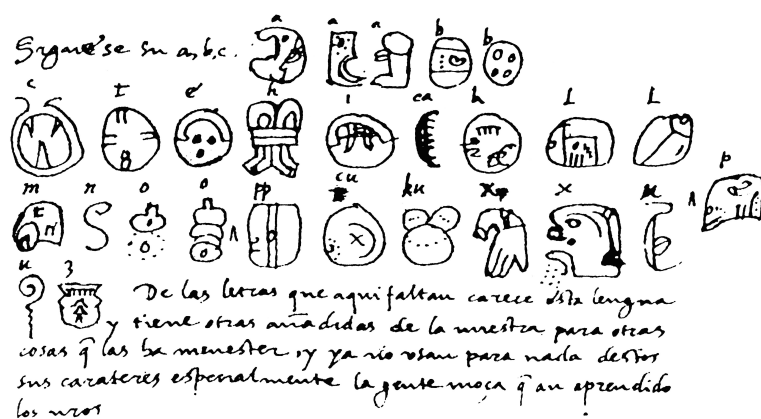 Siguese su a, b, c. a a a b b
c t e h i ca k l l
m n o o pp cu ku x x u p
u z
De las letras que aqui faltan carece esta lengua
y tiene otras añadidas de la nuestra para otras
cosas q̃ las ha menester, y ya no usan para nada destos
sus carateres especialmente la gente moça q̃ an aprendido
los nros